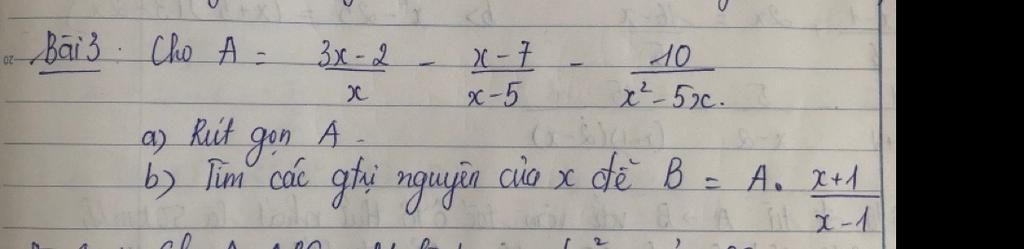 Bài 3. Cho A = \frac{3x-2}{x} - \frac{x-7}{x-5} - \frac{10}{x^2-5x}.
a) Rút gọn A.
b) Tìm các gtrị nguyên của x để B = A. \frac{x+1}{x-1}